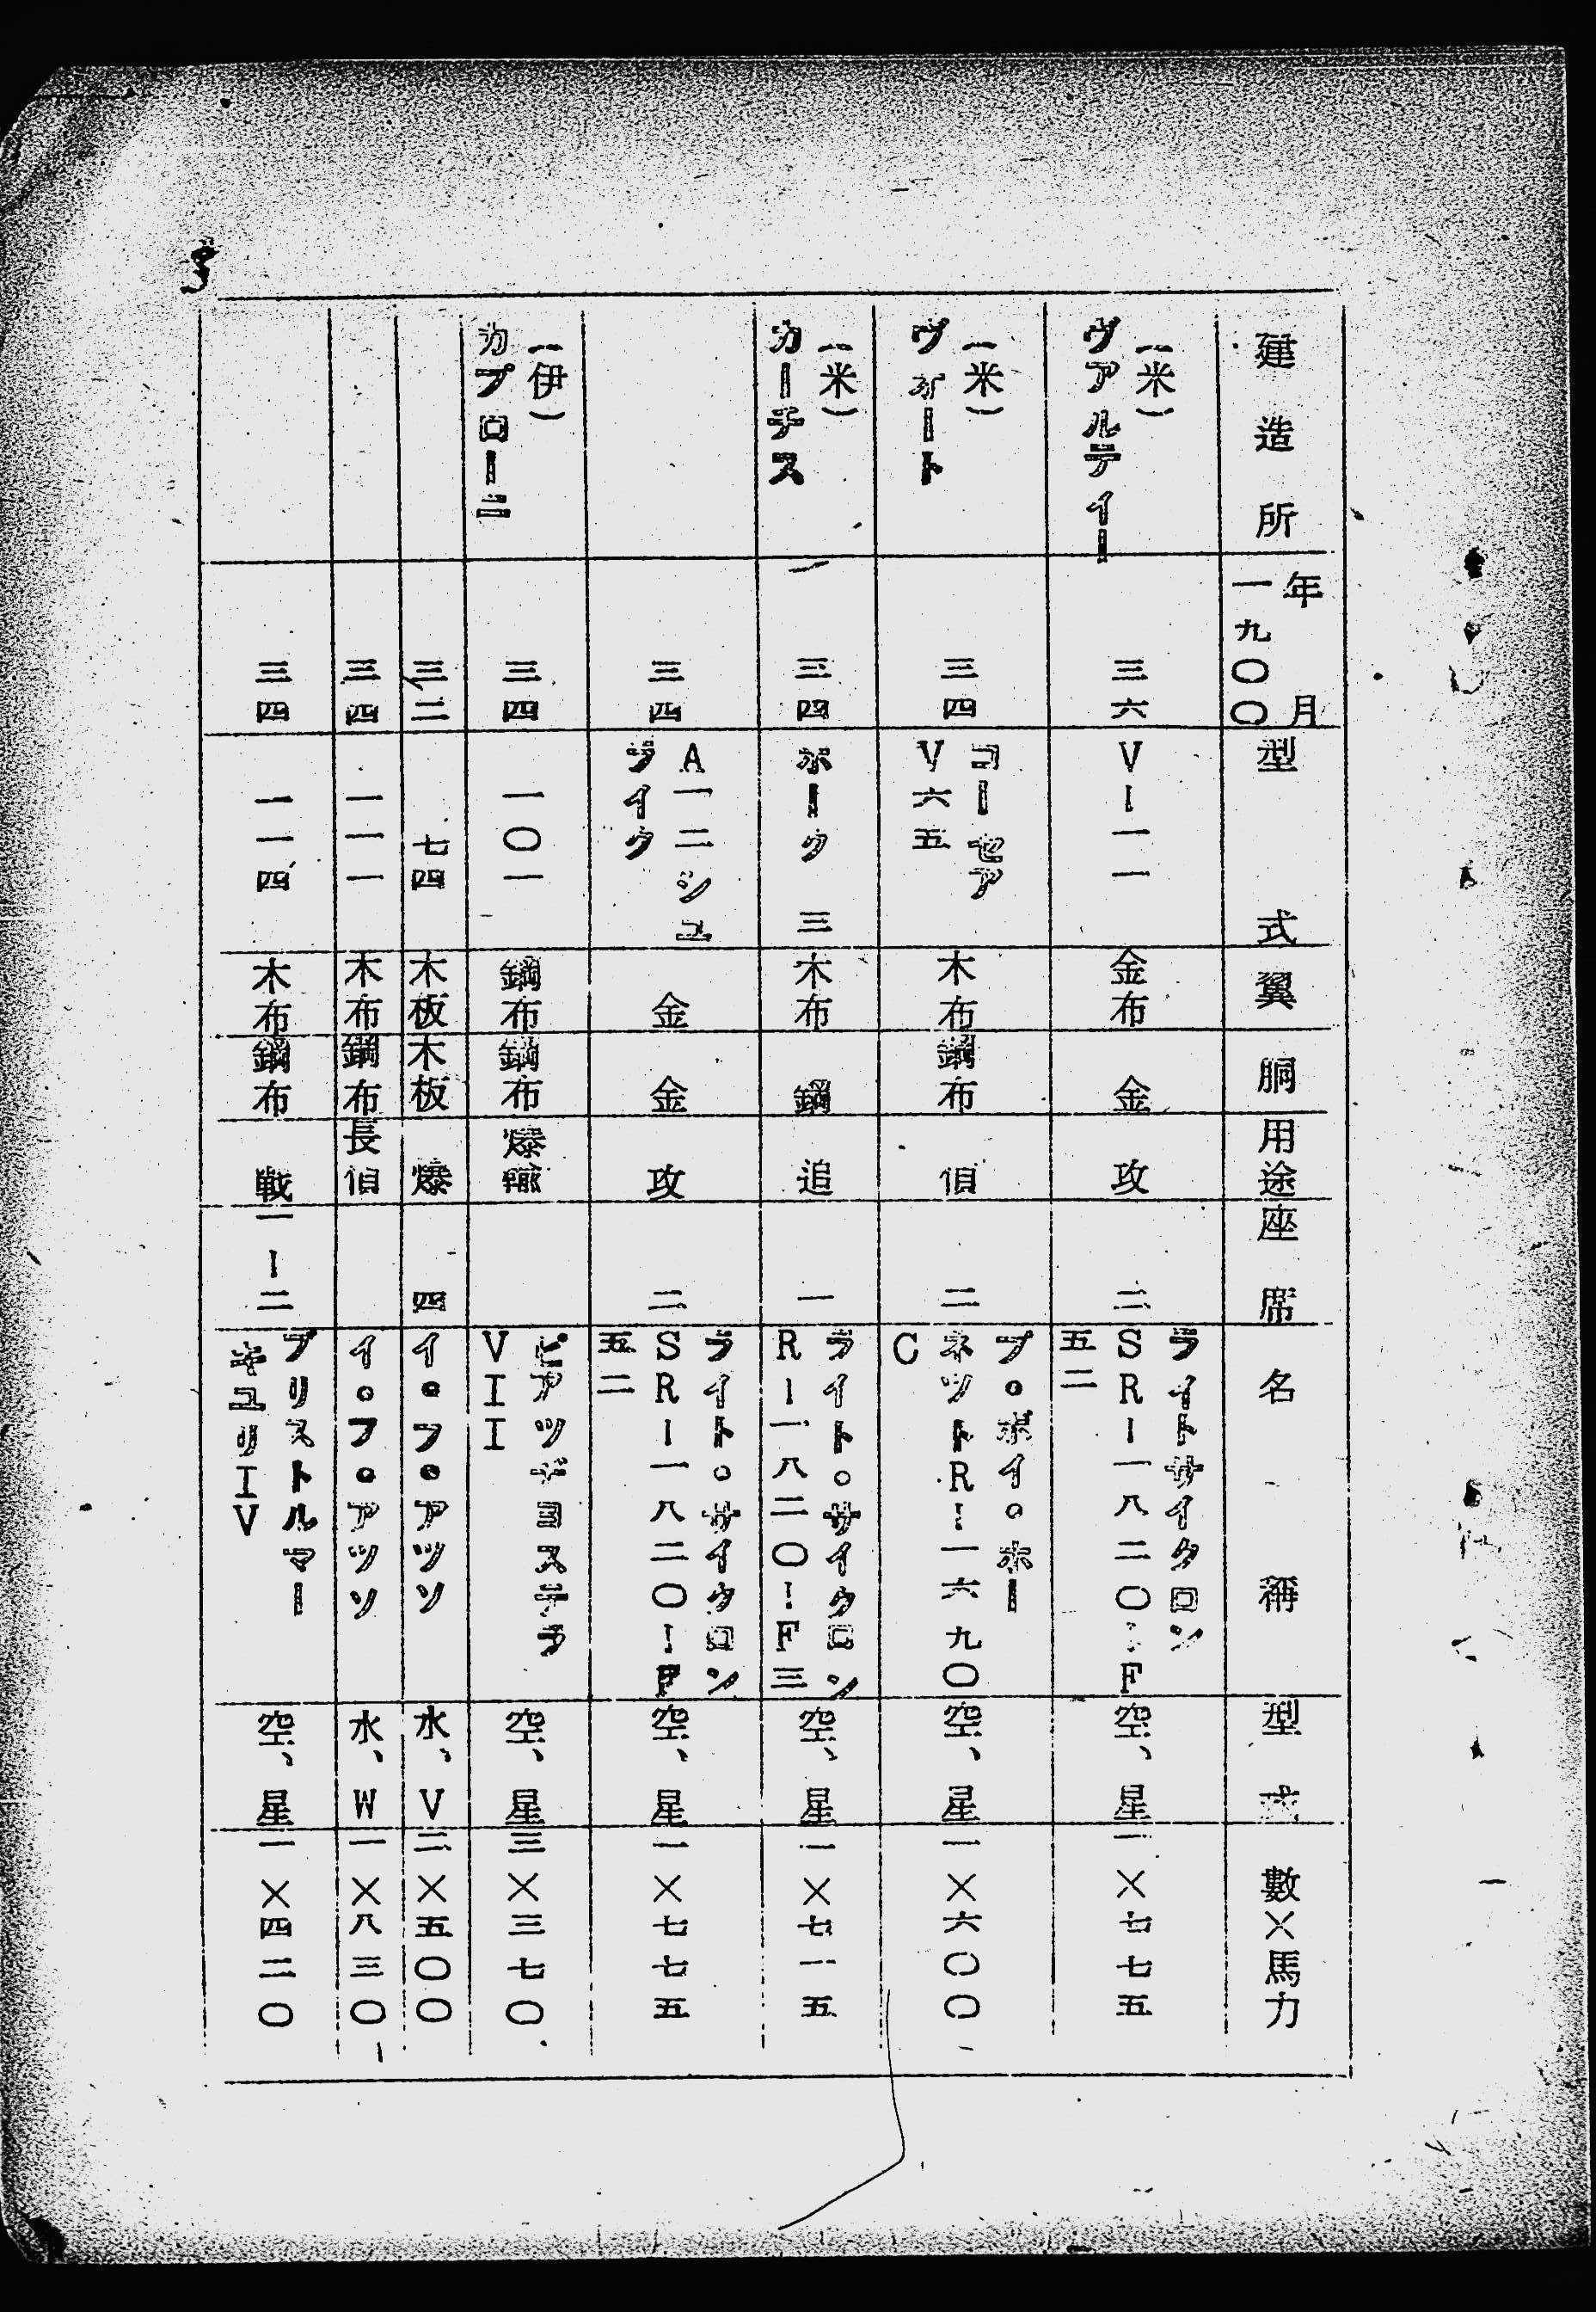 建造所
年月
一九〇〇
型式
翼
胴
用途
座席
名稱
型式
數×馬力
(米)
ヴアルテイー
三六
V－一一
金布
金
攻
二
ライトサイクロン
SR－一八二〇－F
五二
空、星
一×七七五
(米)
ヴオート
三四
コーセア
V六五
木布
鋼布
偵
二
プ。ボイ。ホー
ネツトR－一六九〇
C
空、星
一×六〇〇
(米)
カーチス
三四
ホーク三
木布
鋼
追
一
ライト。サイクロン
R－一八二〇－F三
空、星
一×七一五
三四
A一二シユ
ライク
金
金
攻
二
ライト。サイクロン
SR－一八二〇－F
五二
空、星
一×七七五
(伊)
カプローニ
三四
一〇一
鋼布
鋼布
爆輸
ピアツヂヨステラ
VII
空、星
三×三七〇
三二
七四
木板
木板
爆
四
イ。フ。アツソ
水、V
二×五〇〇
三四
一一一
木布
鋼布
長偵
イ。フ。アツソ
水、W
一×八三〇
三四
一一四
木布
鋼布
戦
一－二
ブリストルマー
キユリIV
空、星
一×四二〇